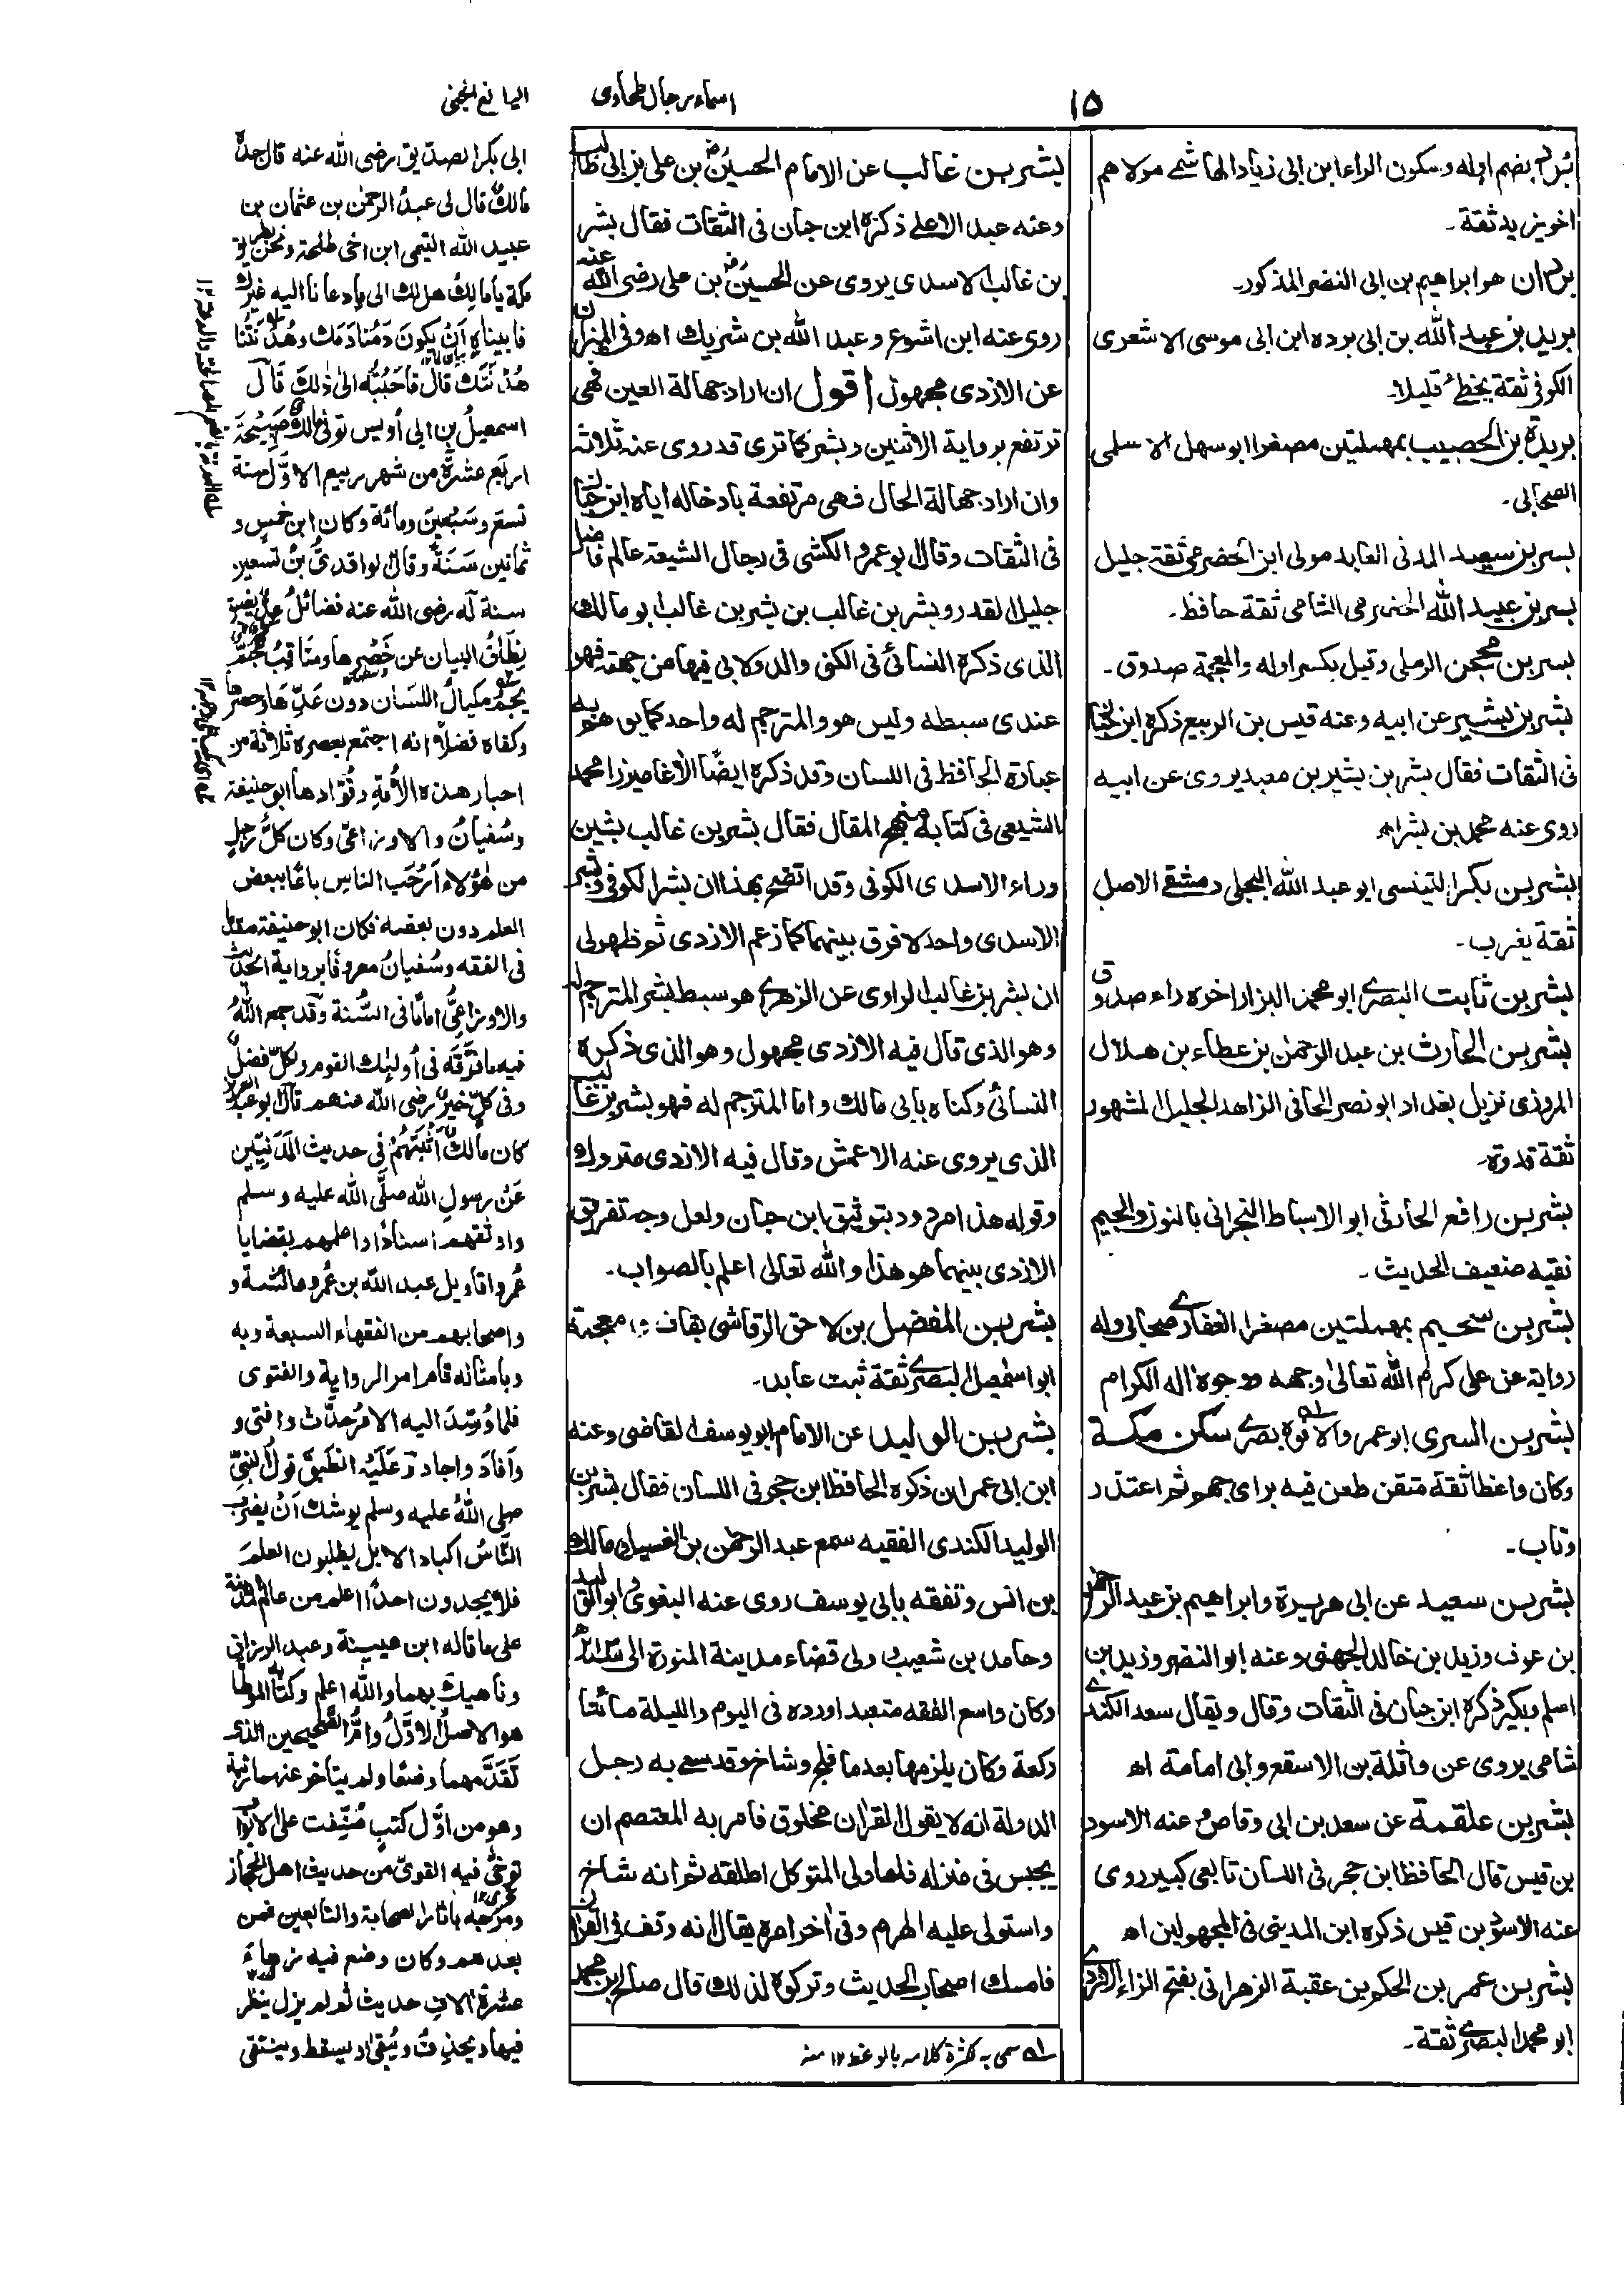 ١٥
اسماء رجال طحاوی
اليانع الجنی
برد بضم اوله وسكون الراء ابن ابی زياد الهاشمے مولاهم
اخو يزيد ثقة۔
بردان هو ابراهيم بن ابی النضر المذكور۔
بريد بن عبد الله بن ابی برده ابن ابی موسی الاشعری
الكوفی ثقة يخطئ قليلا۔
بريدة بن الحصيب بمهملتين مصغرا ابو سهل الاسلمی
الصحابی۔
بسر بن سعيد المدنی العابد مولی ابن الحضرمی ثقة جليل
بسر بن عبيد الله الحضرمی الشامی ثقة حافظ۔
بسر بن محجن الدملی وقيل بكسر اوله والمعجمة صدوق۔
بشر بن بشير عن ابيه وعنه قيس بن الربيع ذكره ابن حبان
فی الثقات فقال بشر بن بشير بن معبد يروی عن ابيه
روی عنه محمد بن بشر اه
بشر بن بكر التينسی ابو عبد الله البجلی دمشقے الاصل
ثقة يغرب۔
بشر بن ثابت البصرے ابو محمد البزار اخره راء صدوق
بشر بن الحارث بن عبد الرحمن بن عطاء بن هلال
المروزی نزيل بغداد ابو نصر الحافی الزاهد الجليل المشهور
ثقة قدوة۔
بشر بن رافع الحارثی ابو الاسباط النجرانی بالنون والجيم
فقيه ضعيف الحديث۔
بشر بن سحيم بمهملتين مصغرا الغفارے صحابی وله
رواية عن علی كرم الله تعالی وجهه ووجوه اله الكرام
بشر بن السری ابو عمرو الافوه بصرے سكن مكة
وكان واعظا ثقة متقن طعن فيه برای جهم ثم اعتذر
وتاب۔
بشر بن سعيد عن ابی هريرة وابراهيم بن عبد الرحمن
بن عوف وزيد بن خالد الجهنی وعنه ابو النضر وزيد بن
اسلم وبكير ذكره ابن حبان فی الثقات وقال ويقال سعد الكندے
شامی يروی عن واثلة بن الاسقع وابی امامة اه
بشر بن علقمة عن سعد بن ابی وقاص وعنه الاسود
بن قيس قال الحافظ ابن حجر فی اللسان تابعی كبير روی
عنه الاسود بن قيس ذكره ابن المدينی فی المجهولين اه
بشر بن عمر بن الحكم بن عقبة الزهرانی بفتح الزاء الازدے
ابو محمد البصرے ثقة۔
بشر بن غالب عن الامام الحسين بن علی بن ابی طالب
وعنه عبد الاعلے ذكره ابن حبان فی الثقات فقال بشر
بن غالب الاسدی يروی عن الحسين بن علی رضی الله عنه
روی عنه ابن اشوع وعبد الله بن شريك اه وفی الميزان
عن الازدی مجهول اقول ان اراد جهالة العين فهی
ترتفع برواية الاثنين وبشر كما تری قد روی عنه ثلاثة
وان اراد جهالة الحال فهی مرتفعة بادخاله اياه ابن حبان
فی الثقات وقال ابو عمرو الكشی فی رجال الشيعة عالم فاضل
جليل القدر وبشر بن غالب بن بشر بن غالب ابو مالك
الذی ذكره النسائی فی الكنی والدولابی فيها من جهته فهو
عندی سبطه وليس هو والمترجم له واحد كما يوهمه
عبارة الحافظ فی اللسان وقد ذكره ايضا الاغا ميرزا محمد
الشيعی فی كتابه منهج المقال فقال بشر بن غالب بشين
وراء الاسدی الكوفی وقد اتضح بهذا ان بشر الكوفی وبشر
الاسدی واحد لا فرق بينهما كما زعم الازدی ثم ظهر لی
ان بشر بن غالب الراوی عن الزهرے هو سبط بشر المترجم له
وهو الذی قال فيه الازدی مجهول وهو الذی ذكره
النسائی وكناه بابی مالك واما المترجم له فهو بشر بن غالب
الذی يروی عنه الاعمش وقال فيه الازدی متروك
وقوله هذا مردود بتوثيق ابن حبان ولعل وجه تفريق
الازدی بينهما هو هذا والله تعالی اعلم بالصواب۔
بشر بن المفضل بن لاحق الرقاشی بقاف و معجمة
ابو اسمعيل البصرے ثقة ثبت عابد۔
بشر بن الوليد عن الامام ابو يوسف القاضی وعنه
ابن ابی عمران ذكره الحافظ ابن حجر فی اللسان فقال بشر بن
الوليد الكندی الفقيه سمع عبد الرحمن بن الغسيل ومالك
بن انس وتفقه بابی يوسف روی عنه البغوی وابو الوليد
وحامد بن شعيب ولی قضاء مدينة المنورة الی
وكان واسع الفقه متعبدا ورده فی اليوم والليلة مائتا
ركعة وكان يلزمها بعد ما فلج وشاخ وقد سعے به رجل
الدولة انه لا يقول القران مخلوق فامر به المعتصم ان
يحبس فی منزله فلما ولی المتوكل اطلقه ثم انه شاخ
واستولی عليه الهرم وفی اخر امره يقال انه وقف فی القران
فامسك اصحاب الحديث وتركوه لذلك قال صالح ابن محمد
له سمی به لكثرة كلامه بالوعظ ١٢ منه
ابی بكر الصديق رضی الله عنه قال جده
مالك قال لی عبد الرحمن بن عثمان بن
عبيد الله التيمی ابن اخی طلحة ونحن بطريق
مكة يا مالك هل لك الی ما دعانا اليه غيرك
فابيناه ان يكون دمنا دمك وهدمنا
هدمك قال فاجبته الی ذلك قال
اسمعيل بن ابی اويس توفی مالك صبيحة
اربع عشرة من شهر ربيع الاول سنة
تسع وسبعين ومائة وكان ابن خمس و
ثمانين سنة وقال الواقدی بن تسعين
سنة له رضی الله عنه فضائل يضيق
نطاق البيان عن خصرها ومناقب
مكيال اللسان دون عدها وحصرها
وكفاه فضلا انه اجتمع بعصره ثلاثة من
احبار هذه الامة وقوادها ابو حنيفة
وسفيان والاوزاعی وكان كل رجل
من هؤلاء ارحب الناس باعا ببعض
العلم دون بعضه فكان ابو حنيفة مقدما
فی الفقه وسفيان معروفا برواية الحديث
والاوزاعی اماما فی السنة وقد جمع الله
فيه ما فرقه فی اولئك القوم ولكل فضل
وفی كل خير رضی الله عنهم قال ابو عبد
كان مالك اثبتهم فی حديث المدنيين
عن رسول الله صلی الله عليه وسلم
واوثقهم اسنادا واعلمهم بقضايا
عمر واقاويل عبد الله بن عمر وعائشة و
واصحابهم من الفقهاء السبعة وبه
وبامثاله قام امر الرواية والفتوی
فلما وسد اليه الامر حدث وافتی و
وافاد واجاد وعليه انطبق قول النبی
صلی الله عليه وسلم يوشك ان يضرب
الناس اكباد الابل يطلبون العلم
فلا يجدون احدا اعلم من عالم المدينة
علی ما قاله ابن عيينة وعبد الرزاق
وناهيك بهما والله اعلم وكتابه الموطا
هو الاصل الاول وام الصحيحين الذی
تقدمهما وضعا ولم يتاخر عنهما رتبة
وهو من اول كتب صنفت علی الابواب
توخی فيه القوی من حديث اهل الحجاز
ومزجه باثار الصحابة والتابعين فمن
بعدهم وكان وضع فيه زهاء
عشرة الاف حديث ثم لم يزل ينظر
فيها ويحذف ويبقی ويسقط وينتقی